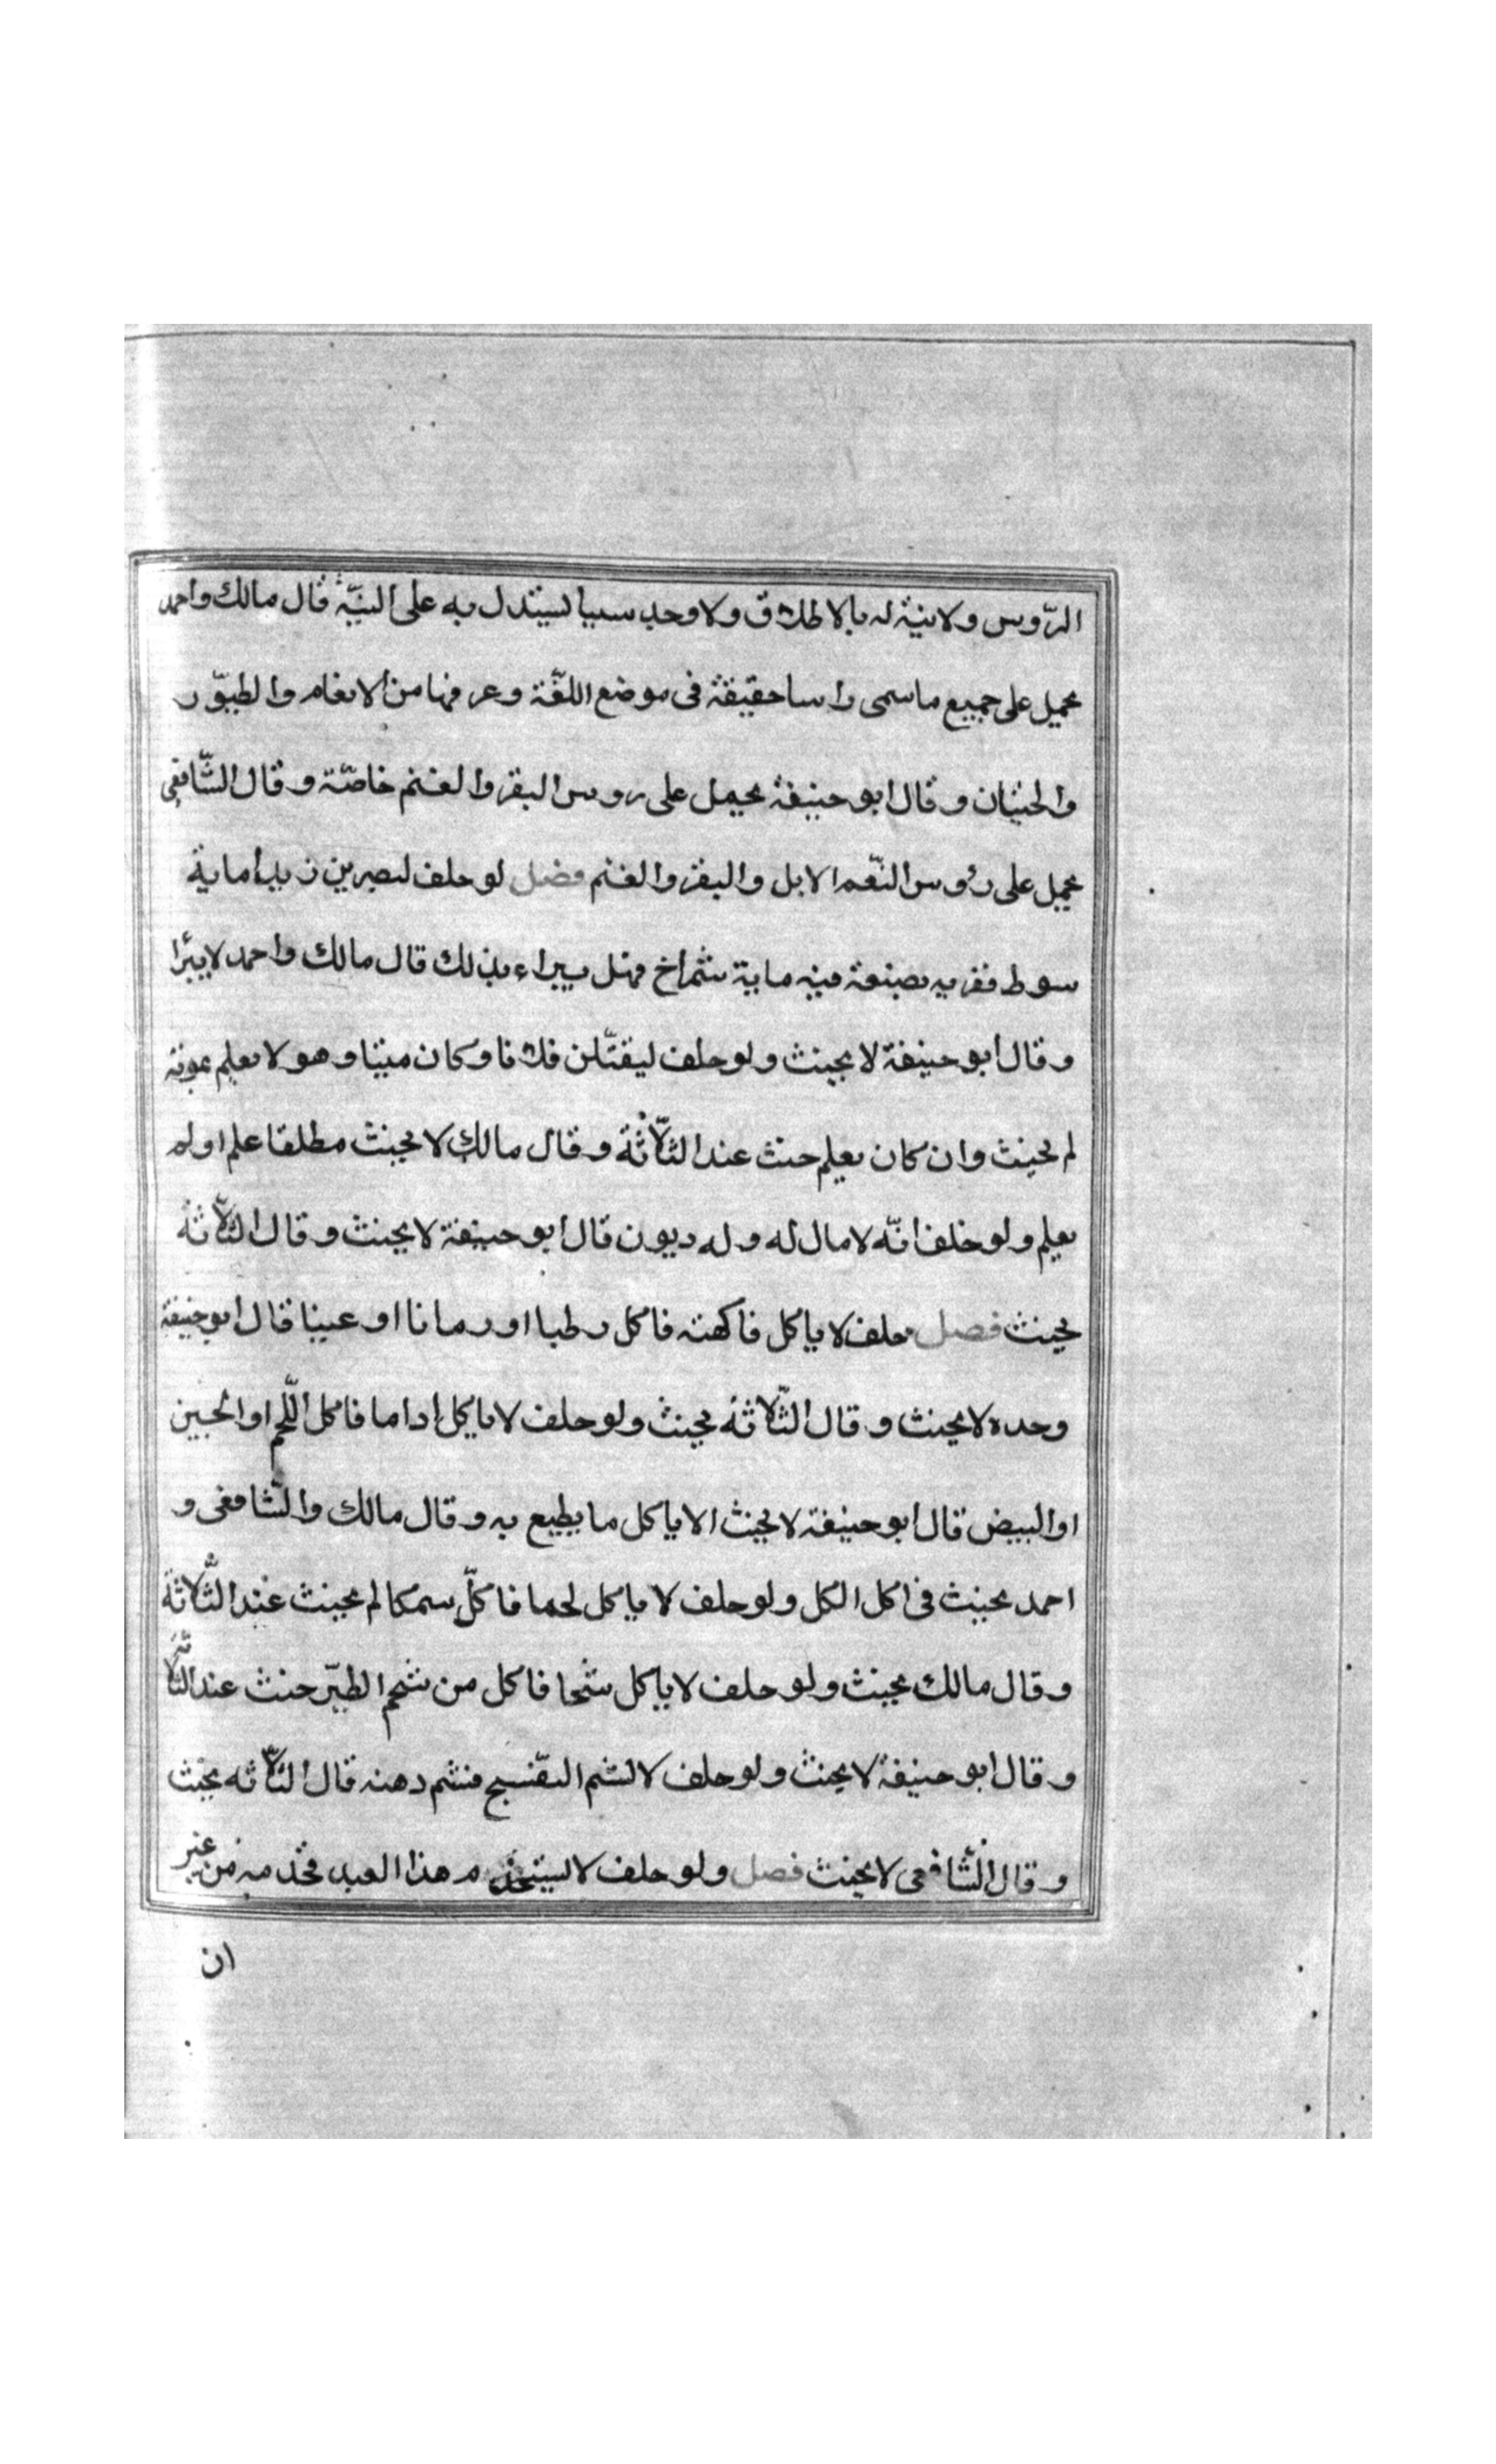 الرّوس ولا نية له بالاطلاق ولا وجد سببا ليستدل به على النيّة قال مالك واحمد
يحمل على جميع ما سمى راسا حقيقة فى موضع اللغّة وعرفها من الانعام والطيوّر
والحيتان وقال ابو حنيفة يحمل على روس البقر والغنم خاصّة وقال الشّافعى
يحمل على رؤس النّعم الابل والبقر والغنم فصل لو حلف ليضربن زيدا ماية
سوط فضربه بضغث فيه ماية شمراخ فهل يبراء بذلك قال مالك واحمد لا يبرا
وقال ابو حنيفة لا يحنث ولو حلف ليقتّلن فلانا وكان ميتا وهو لا يعلم بموته
لم يحنث وان كان يعلم حنث عند الثلّاثة وقال مالك لا يحنث مطلقا علم او لم
يعلم ولو حلف انّه لا مال له وله ديون قال ابو حنيفة لا يحنث وقال الثلّاثة
يحنث فصل حلف لا ياكل فاكهة فاكل رطبا او رمانا او عنبا قال ابو حنيفة
وحده لا يحنث وقال الثّلاثة يحنث ولو حلف لا ياكل اداما فاكل اللّحم او الجبن
او البيض قال ابو حنيفة لا يحنث الا ياكل ما يطبع به وقال مالك والشّافعى و
احمد يحنث فى اكل الكل ولو حلف لا ياكل لحما فاكلّ سمكا لم يحنث عند الثّلاثة
وقال مالك يحنث ولو حلف لا ياكل شحما فاكل من شحم الظهّر حنث عند الثلاثة
وقال ابو حنيفة لا يحنث ولو حلف لا يشم البنفسج فشم دهنه قال الثلّاثه يحنث
وقال الشّافعى لا يحنث فصل ولو حلف لا يستخدم هذا العبد فخدمه من غير
ان